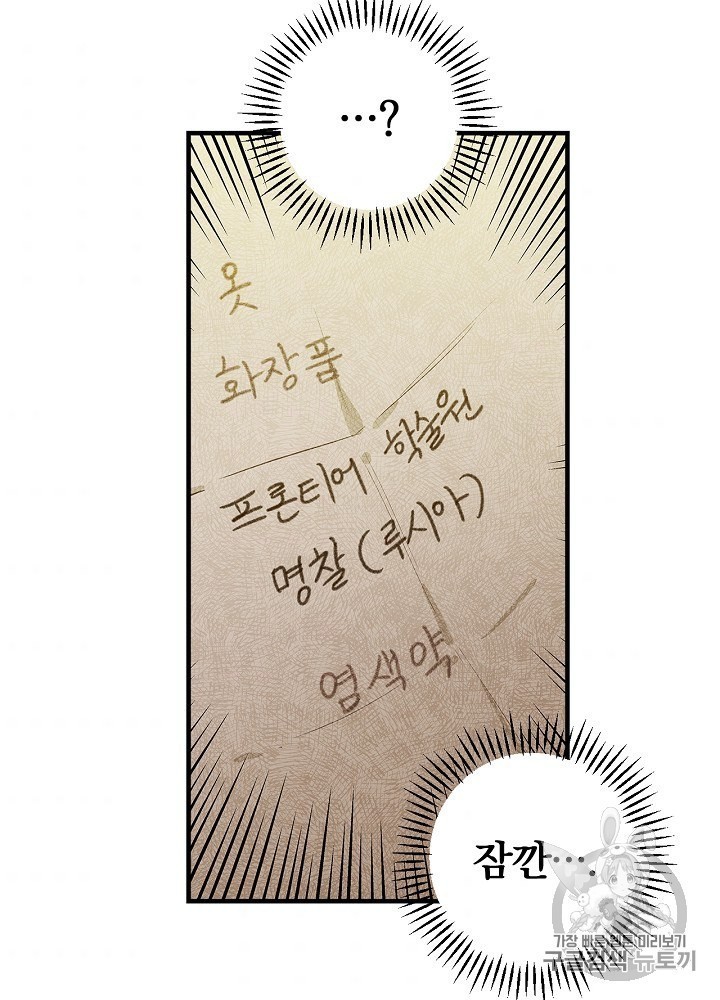 …?
옷
화장품
프론티어 학술원
명찰(루시아)
염색약
잠깐….
가장 빠른 웹툰 미리보기
구글검색 뉴토끼